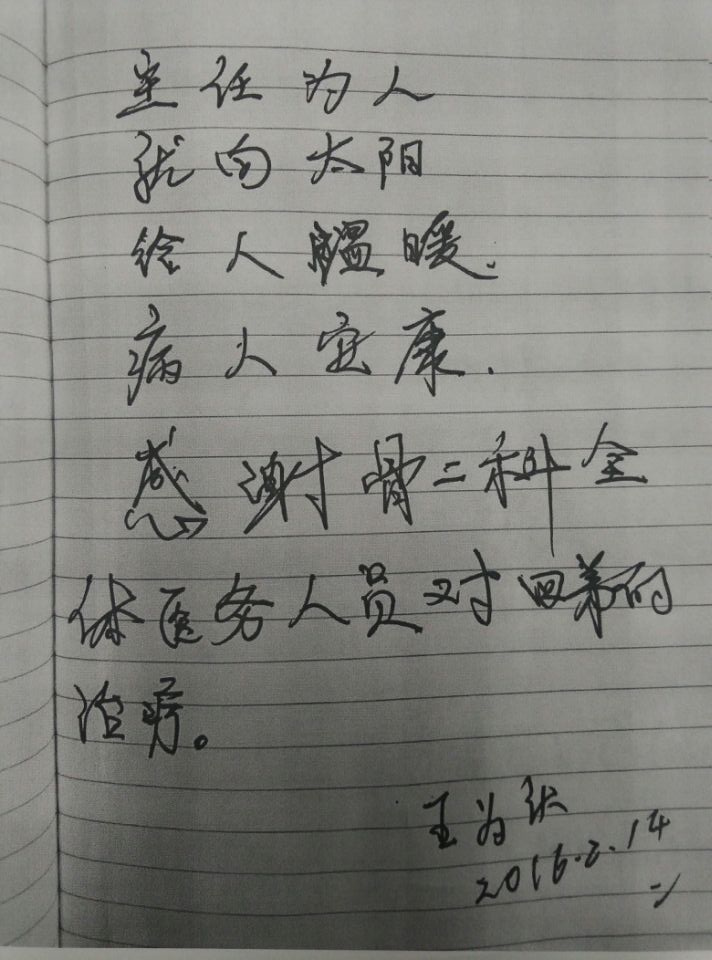 主任为人
就向太阳
给人温暖.
病人安康.
感谢骨二科全
体医务人员对四弟的
治疗。
王为
2016.2.14